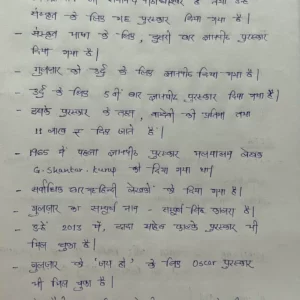 संस्कृत के लिए यह पुरस्कार दिया गया है।
- संस्कृत भाषा के लिए, दूसरी बार ज्ञानपीठ पुरस्कार
दिया गया है।
- गुलजार को उर्दु के लिए ज्ञानपीठ दिया गया है।
- उर्दु के लिए 5 वीं बार ज्ञानपीठ पुरस्कार दिया गया है।
- इसके पुरस्कार के तहत, वाग्देवी की प्रतिमा तथा
11 लाख रु दिए जाते हैं।
- 1965 में पहला ज्ञानपीठ पुरस्कार मलयालम लेखक
G-Shankar-kurup को दिया गया था।
- सर्वाधिक बार हिन्दी लेखकों को दिया गया है।
- गुलजार का सम्पूर्ण नाम - सम्पूर्ण सिंह कालरा है।
- इन्हें 2013 में, दादा साहेब फाल्के पुरस्कार भी
मिल चुका है।
- गुलजार के 'जय हो' के लिए Oscar पुरस्कार
भी मिल चुका है।